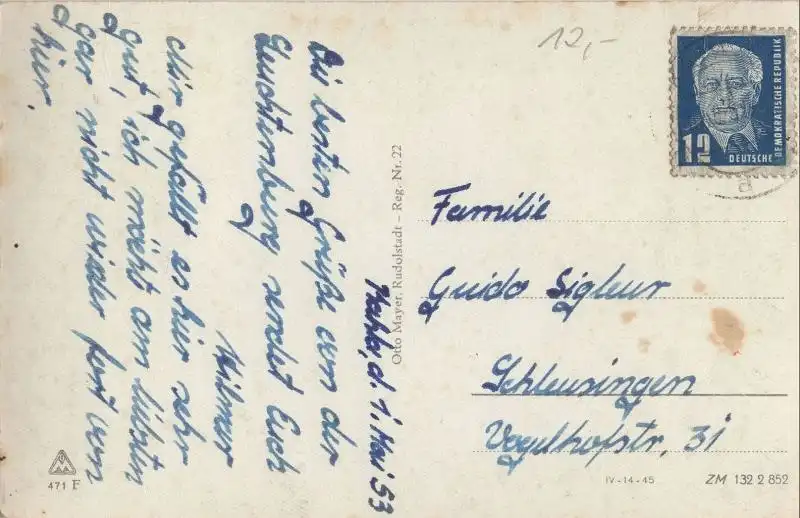 Kahla, d. 1. Mai '53
Die besten Grüße von der
Leuchtenburg sendet Euch
Hilmar
Mir gefällt es hier sehr
gut, ich möcht am liebsten
gar nicht wieder fort von
hier.
Otto Mayer, Rudolstadt – Reg. Nr. 22
12,-
12
DEUTSCHE
DEMOKRATISCHE REPUBLIK
Familie
Guido Sigleur
Schleusingen
Vogelhofstr, 31
471 F
IV-14-45
ZM 132 2 852